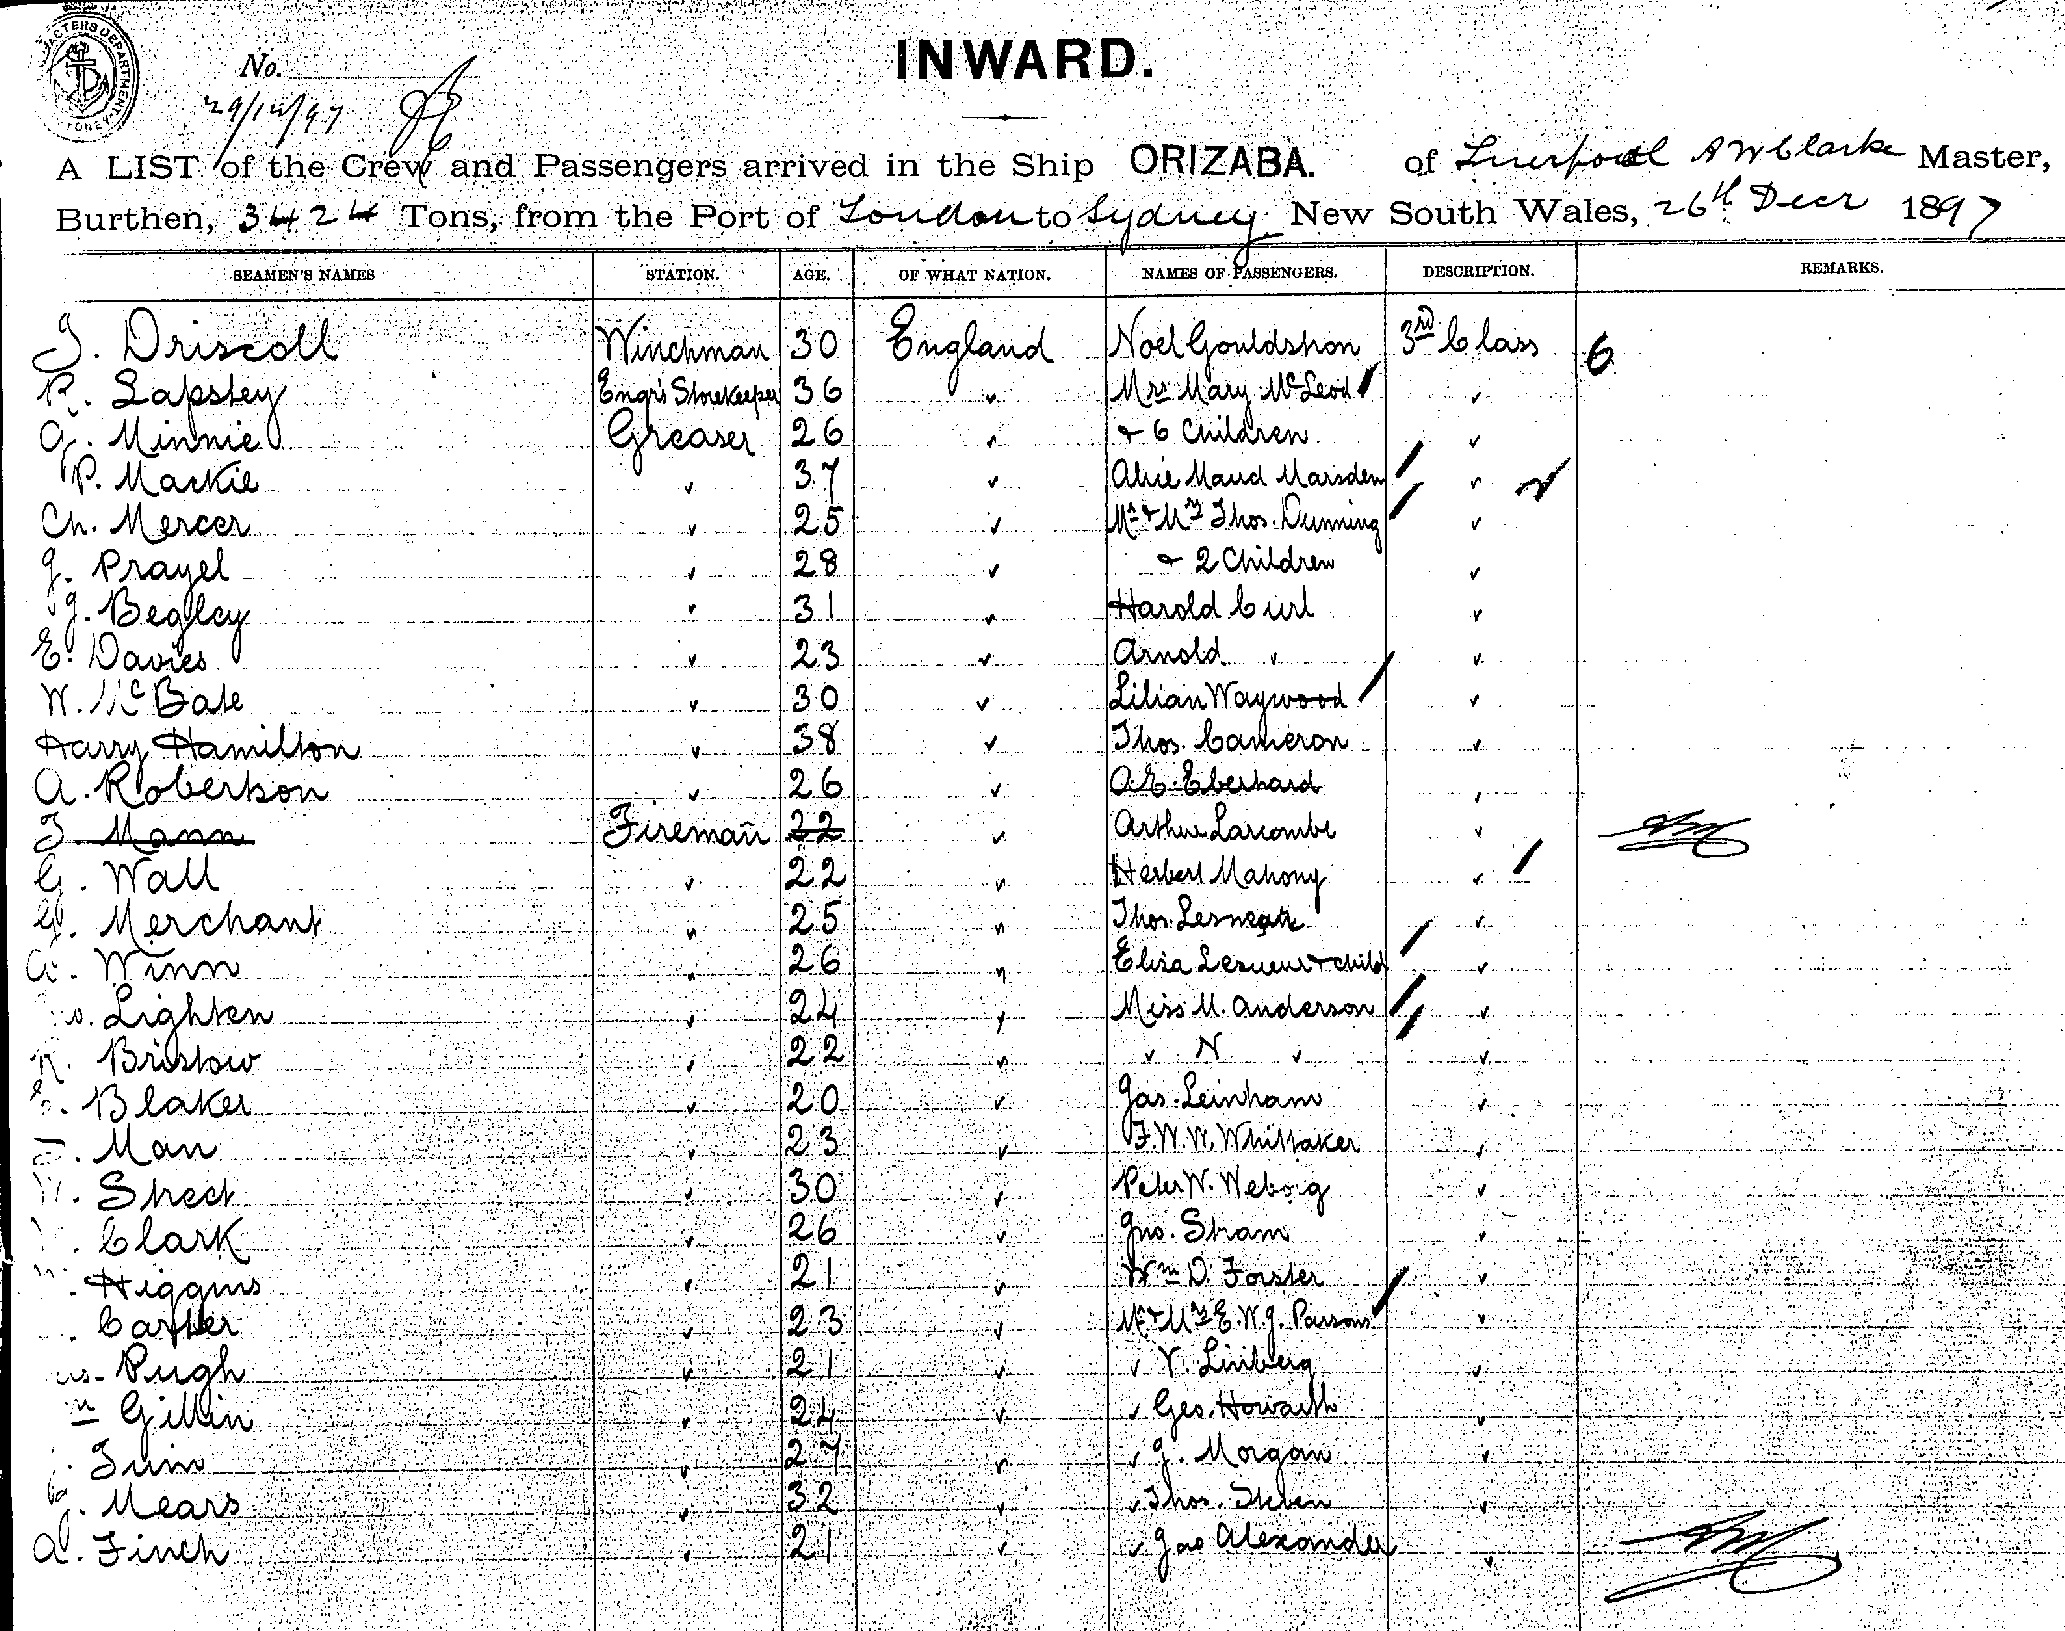 INWARD.
No.
29/12/97
A LIST of the Crew and Passengers arrived in the Ship ORIZABA. of Liverpool A W Clarke Master,
Burthen, 3424 Tons, from the Port of London to Sydney New South Wales, 26th Decr 1897
SEAMEN'S NAMES STATION. AGE. OF WHAT NATION. NAMES OF PASSENGERS. DESCRIPTION. REMARKS.
J. Driscoll Winchman 30 England Noel Gouldshon 3rd Class 6
R. Lapsley Engr's Storekeeper 36 " Mrs Mary McLeod "
G. Minnie Greaser 26 " & 6 Children "
P. Mackie " 37 " Alice Maud Marsden "
Ch. Mercer " 25 " Mr & Mrs Thos. Dunning "
J. Prayel " 28 " & 2 Children "
J. Begley " 31 " Harold Curl "
E. Davies " 23 " Arnold " "
W. McBate " 30 " Lilian Waywood "
Harry Hamilton " 38 " Thos. Cameron "
A. Robertson " 26 " A.E. Eberhard "
J Mann Fireman 22 " Arthur Larcombe "
G. Wall " 22 " Herbert Mahony "
G. Merchant " 25 " Thos. "
A. Winn " 26 " Eliza Lesueur & child "
Lighten " 24 " Miss M. Anderson "
Bristow " 22 " " N " "
Blaker " 20 " Jas. Leinham "
Man " 23 " F. W. W. Whittaker "
Street " 30 " Peter W. "
Clark " 26 " Jno. Stram "
Higgins " 21 " Wm D. Forster "
Carter " 23 " Mr & Mrs E. W. J. Parsons "
Pugh " 21 " " V. Liniberg "
Gillin " 24 " " Geo. Howarth "
" 27 " " J. Morgan "
J. Mears " 32 " " Thos. "
A. Finch " 21 " " Jas Alexander "